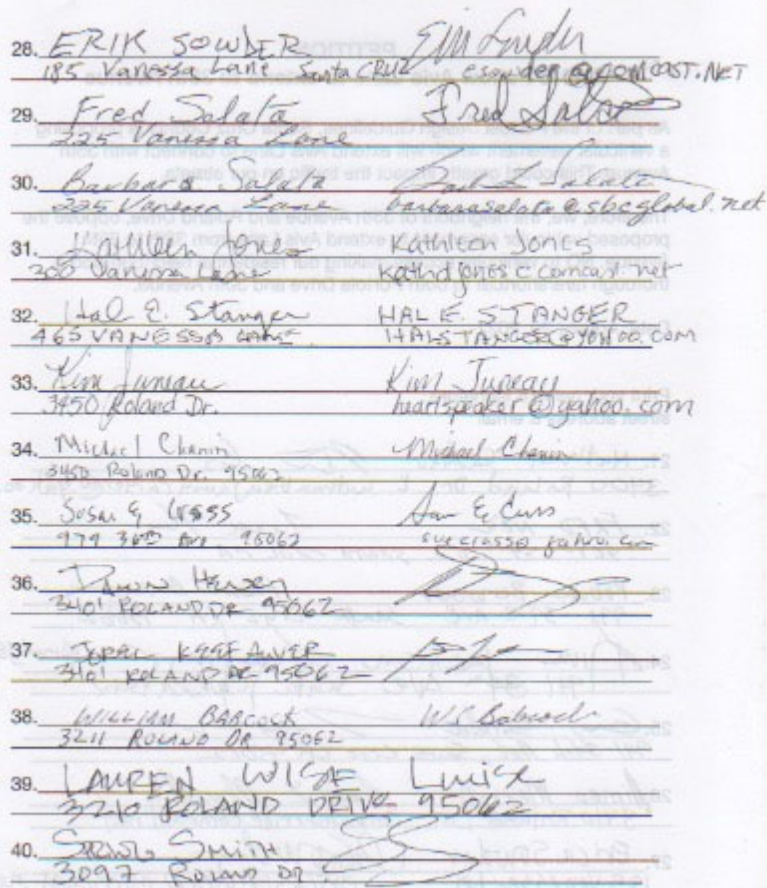 28. ERIK SOWDER
185 Vanessa Lane Santa CRUZ esowder@COMCAST.NET
29. Fred Salata Fred Salata
225 Vanessa Lane
30. Barbara Salata Salata
225 Vanessa Lane barbarasalata@sbcglobal.net
31. Kathleen Jones Kathleen Jones
300 Vanessa Lane kathdjones@comcast.net
32. Hal E. Stanger HAL E. STANGER
465 VANESSA LANE HALSTANGER@YAHOO.COM
33. Kim Juneau Kim Juneau
3450 Roland Dr. heartspeaker@yahoo.com
34. Michael Chanin Michael Chanin
3450 Roland Dr. 95062
35. Susan G
979 Ave 95062
36. Dawn
3401 ROLAND DR 95062
37. KEEFAUVER
3401 ROLAND DR 95062
38. WILLIAM BABCOCK W. Babcock
3211 ROLAND DR 95062
39. LAUREN WISE
3210 ROLAND DRIVE 95062
40. SMITH
3097 ROLAND DR